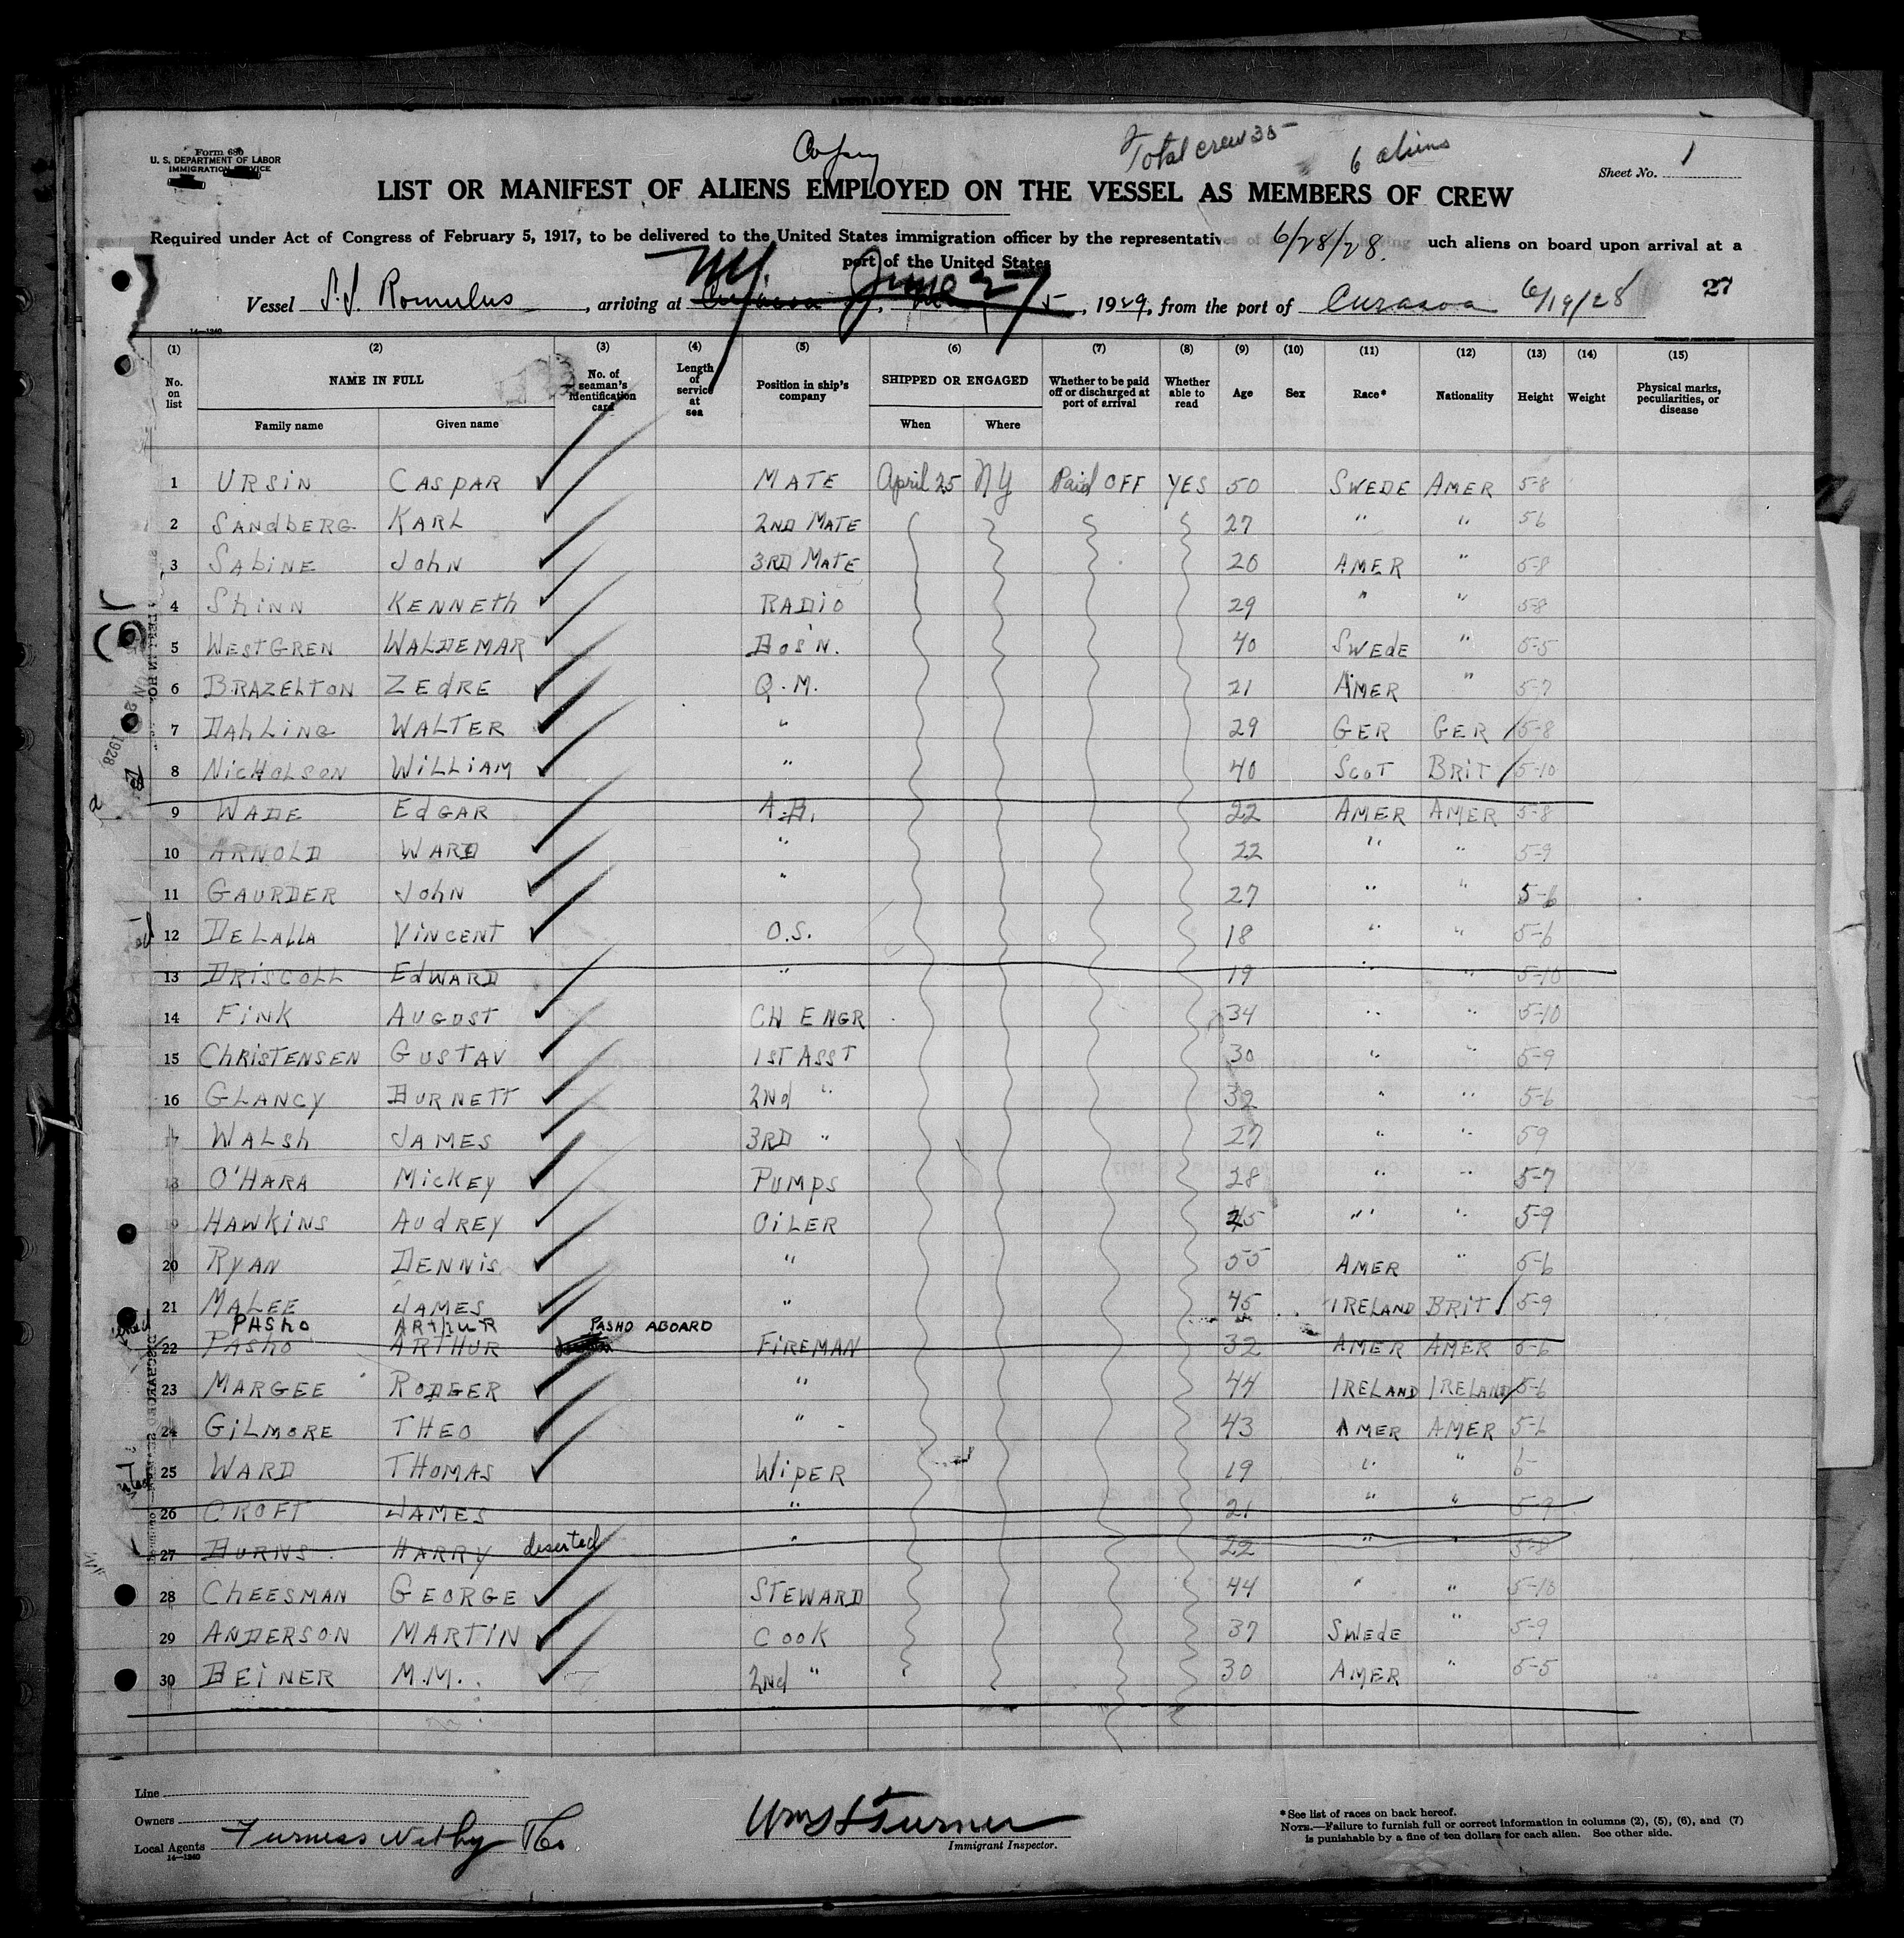 Copy
Total crew 35
6 aliens
Form 680
U. S. DEPARTMENT OF LABOR
IMMIGRATION SERVICE
Sheet No. 1
LIST OR MANIFEST OF ALIENS EMPLOYED ON THE VESSEL AS MEMBERS OF CREW
Required under Act of Congress of February 5, 1917, to be delivered to the United States immigration officer by the representative of 6/28/28. uch aliens on board upon arrival at a
port of the United States
Vessel S.S. Romulus, arriving at NY. June 27, 1929, from the port of Curasoa 6/19/28 27
14—1240
(1) (2) (3) (4) (5) (6) (7) (8) (9) (10) (11) (12) (13) (14) (15)
No. on list NAME IN FULL No. of seaman's identification card Length of service at sea Position in ship's company SHIPPED OR ENGAGED Whether to be paid off or discharged at port of arrival Whether able to read Age Sex Race* Nationality Height Weight Physical marks, peculiarities, or disease
Family name Given name When Where
1 URSIN CASPAR MATE April 25 NY Paid OFF YES 50 SWEDE AMER 5-8
2 SANDBERG KARL 2ND MATE 27 " " 5 6
3 SABINE JOHN 3RD MATE 20 AMER " 5-8
4 SHINN KENNETH RADIO 29 " " 5-8
5 WESTGREN WALDEMAR BOS'N. 40 SWEDE " 5-5
6 BRAZELTON ZEDRE Q.M. 21 AMER " 5-7
7 DAHLING WALTER " 29 GER GER 5-8
8 NICHOLSON WILLIAM " 40 SCOT BRIT 5-10
9 WADE EDGAR A.B. 22 AMER AMER 5-8
10 ARNOLD WARD " 22 " " 5-9
11 GAURDER JOHN " 27 " " 5-6
12 DELALLA VINCENT O.S. 18 " " 5-6
13 DRISCOLL EDWARD " 19 " " 5-10
14 FINK AUGUST CH ENGR 34 " " 5-10
15 CHRISTENSEN GUSTAV 1ST ASST 30 " " 5-9
16 GLANCY BURNETT 2ND " 32 " " 5-6
17 WALSH JAMES 3RD " 27 " " 5 9
18 O'HARA MICKEY PUMPS 28 " " 5-7
19 HAWKINS AUDREY OILER 25 " " 5-9
20 RYAN DENNIS " 55 AMER " 5-6
21 MALEE JAMES " 45 IRELAND BRIT 5-9
PASHO ARTHUR PASHO ABOARD
22 PASHO ARTHUR FIREMAN 32 AMER AMER 5-6
23 MARGEE RODGER " 44 IRELAND IRELAND 5-6
24 GILMORE THEO " 43 AMER AMER 5-6
25 WARD THOMAS WIPER 19 " "
26 CROFT JAMES " 21 " " 5-9
27 BURNS HARRY deserted " 22 " " 5-8
28 CHEESMAN GEORGE STEWARD 44 " " 5-10
29 ANDERSON MARTIN COOK 37 SWEDE " 5-9
30 BEINER M.M. 2ND " 30 AMER " 5-5
Line
Owners
Local Agents Furness Withy & Co
14—1240
Wm S Turner
Immigrant Inspector.
*See list of races on back hereof.
NOTE.—Failure to furnish full or correct information in columns (2), (5), (6), and (7)
is punishable by a fine of ten dollars for each alien. See other side.